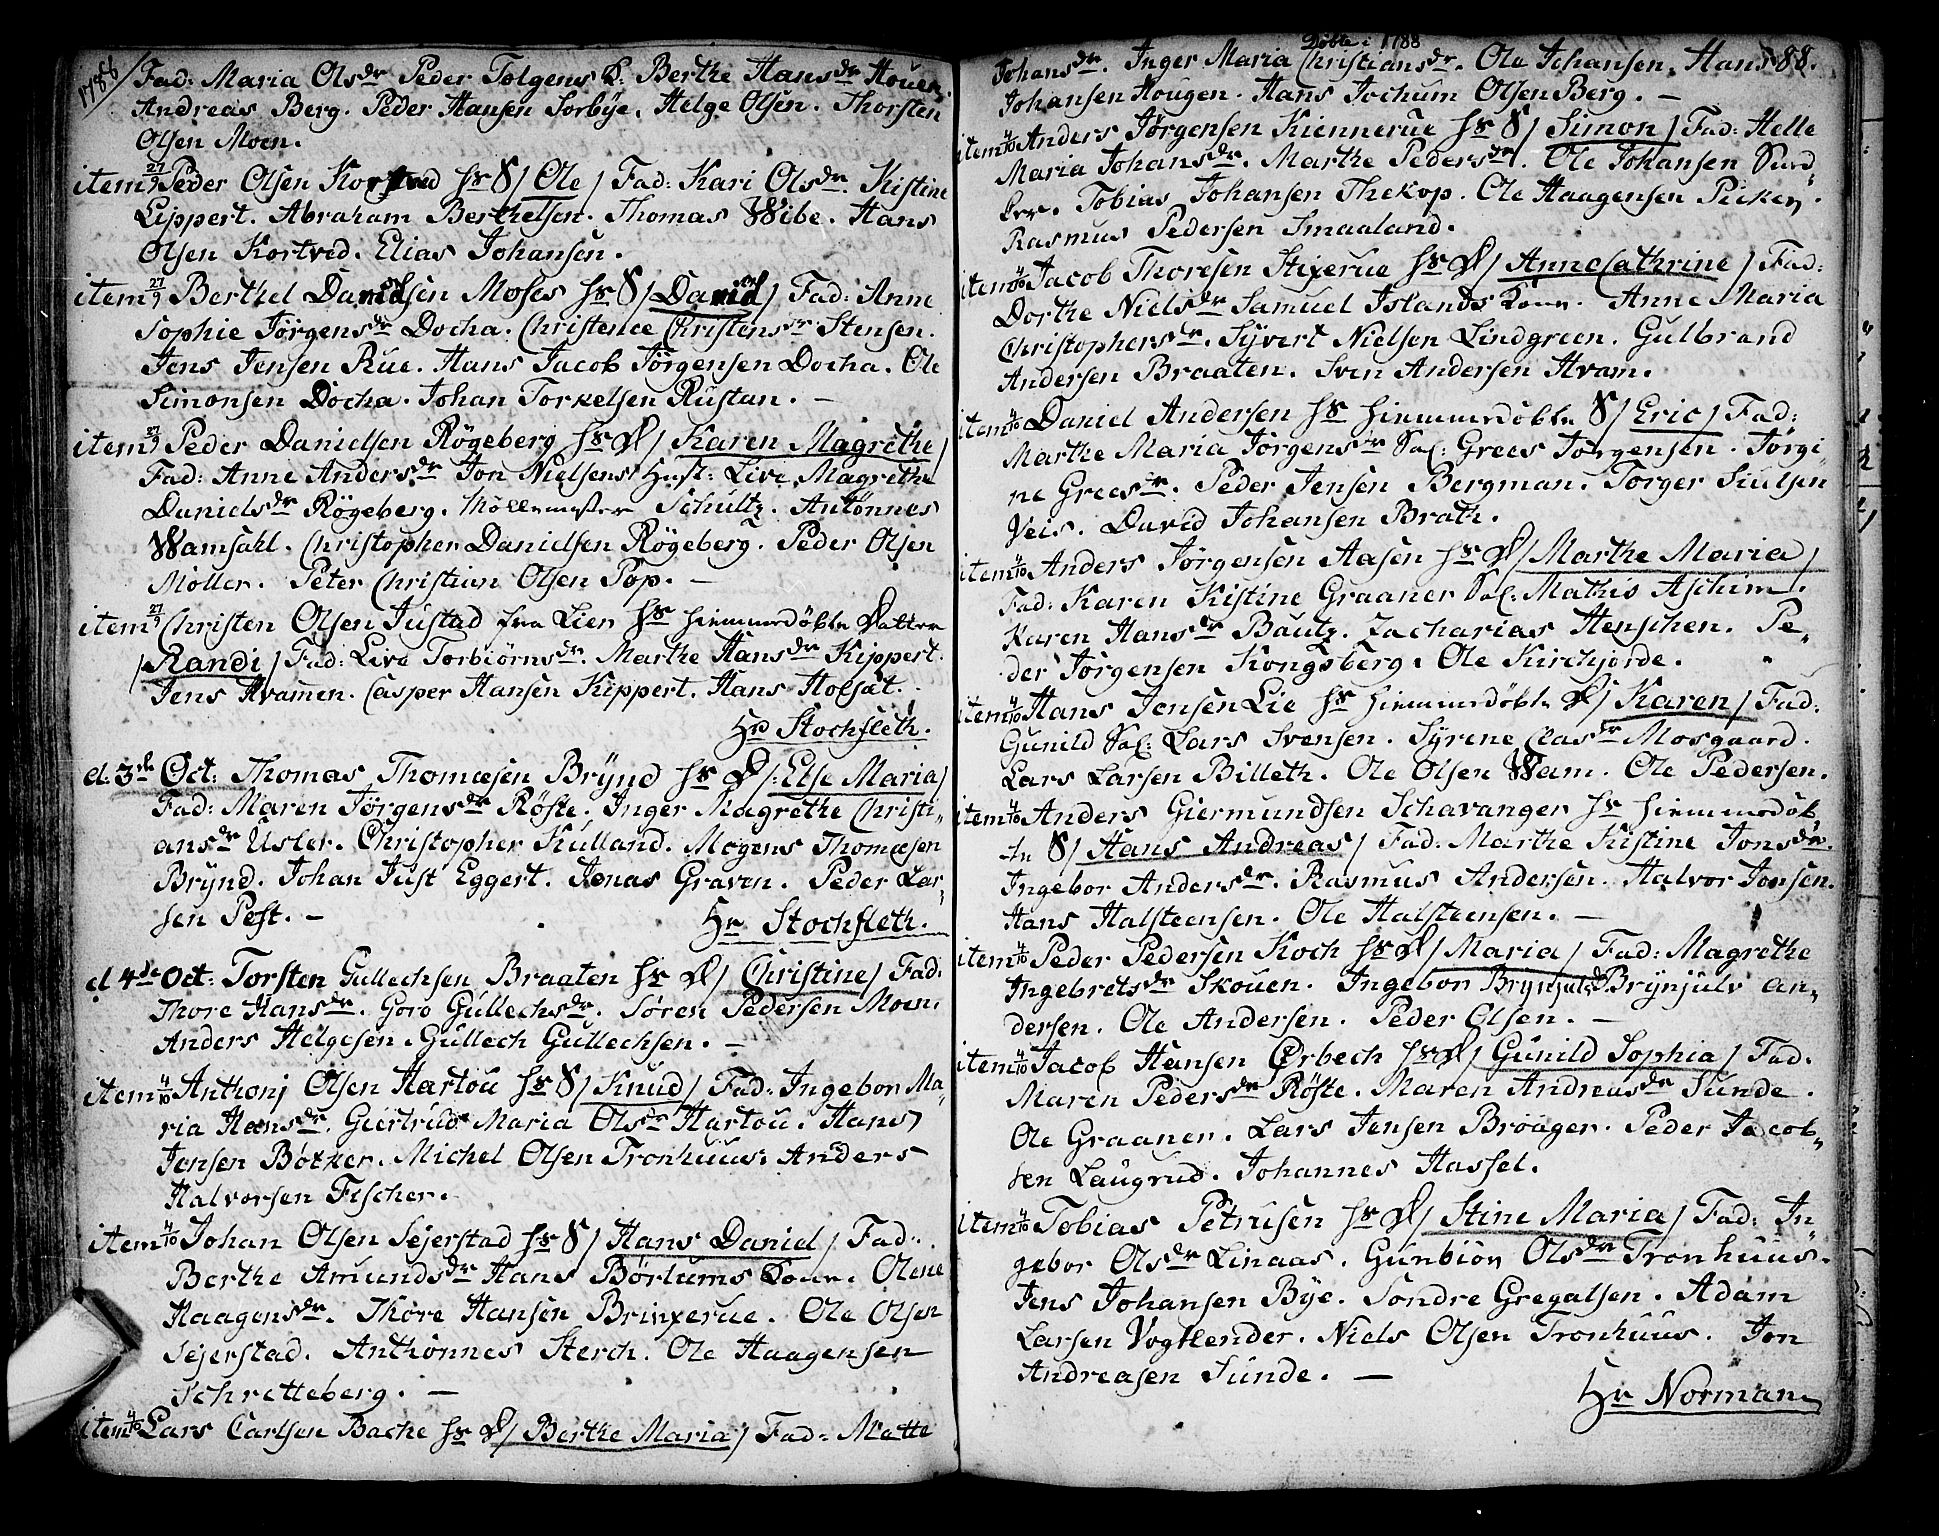 1788
Fad: Maria Olsdr Peder Tolgens K: Berthe Hansdr Houen.
Andreas Berg. Peder Hansen Sorbÿe. Helge Olsen. Thorsten
Olsen Moen.
item 27/9 Peder Olsen Kortved hs S / Ole / Fad: Kari Olsdr. Kistine
Lippert. Abraham Berthelsen. Thomas Wibe. Hans
Olsen Kortved. Elias Johansen.
item 27/9 Berthel Davidsen Moses hs S / David / Fad: Anne
Sophie Jørgensdr Docha. Christence Christensdr Stensen.
Jens Jensen Rue. Hans Jacob Jørgensen Docha. Ole
Simonsen Docha. Johan Torkelsen Rustan. —
item 27/9 Peder Danielsen Rögeberg hs D / Karen Magrethe /
Fad: Anne Andersdr Jon Nielsens Hust: Live Magrethe
Danielsdr Rögeberg. Möllemester Schultz. Antönnes
Wamsahl. Christopher Danielsen Rögeberg. Peder Olsen
Möller. Peter Christian Olsen Pop. —
item 27/9 Christen Olsen Justad fra Lier hs hiemmedöbte Datter
/ Randi / Fad: Live Torbiörnsdr. Marthe Hansdr Kippert.
Jens Hvamen. Casper Hansen Kippert. Hans Holsæt.
Hr Stochfleth.
d: 5de Oct: Thomas Thomæsen Brÿnd hs D /: Else Maria /
Fad: Maren Jørgensdr Röste. Inger Magrethe Christi-
ansdr Usler. Christopher Kulland. Mogens Thomæsen
Brÿnd. Johan Just Eggert. Jonas Graven. Peder Lar-
sen Pest. —
Hr Stochfleth.
d 4de Oct: Torsten Gullechsen Braaten hs D / Christine / Fad:
Thore Hansdr. Goro Gullechsdr. Søren Pedersen Moen.
Anders Helgesen. Gullech Gullechsen. —
item 4/10 Anthonj Olsen Hartou hs S / Knud / Fad: Ingebor Ma-
ria Hansdr. Giertrud Maria Olsdr Hartou. Hans
Jensen Bötker. Michel Olsen Tronhuus. Anders
Halvorsen Fischer.
item 4/10 Johan Olsen Sejerstad hs S / Hans Daniel / Fad:
Berthe Amundsdr Hans Börlums Kone. Olene
Haagensdr. Thore Hansen Brinkerue. Ole Olsen
Sejerstad. Anthonnes Sterch. Ole Haagensen
Schretteberg. —
item 4/10 Lars Carlsen Bache hs D / Berthe Maria / Fad: Mette
Döbte i 1788
88.
Johansdr. Inger Maria Christiansdr. Ole Johansen. Hans
Johansen Hougen. Hans Jochum Olsen Berg. —
item 4/10 Anders Jørgensen Kiennerue hs S / Simon / Fad: Helle
Maria Johansdr. Marthe Pedersdr. Ole Johansen
Tobias Johansen Thekop. Ole Haagensen Picken.
Rasmus Pedersen Smaaland.
item 4/10 Jacob Thoresen Stixerue hs D / Anne Cathrine / Fad:
Dorthe Nielsdr Samuel Islands Kone. Anne Maria
Christophersdr. Syvert Nielsen Lindgreen. Gulbrand
Andersen Braaten. Sven Andersen Hvam.
item 4/10 Daniel Andersen hs hiemmedöbte S / Eric / Fad:
Marthe Maria Jorgensdr Sal: Grees Jørgensen. Jørgi-
ne Greesdr. Peder Jensen Bergman. Torger Kulsen
Veis. David Johansen Brath.
item 4/10 Anders Jørgensen Aasen hs D / Marthe Maria /
Fad: Karen Kistine Graaner Sal: Mathis Aschim.
Karen Hansdr Bautz. Zacharias Henschen. Pe-
der Jørgensen Kongsberg. Ole Kirchjorde.
item 4/10 Hans Jensen Lie hs hiemmedöbte D / Karen / Fad:
Gunild Sal: Lars Svensen. Syrene Clasdr Mosgaard.
Lars Larsen Billeth. Ole Olsen Wam. Ole Pedersen.
item 4/10 Anders Giermundsen Schavanger hs hiemmedöb-
te S / Hans Andreas / Fad: Marthe Kistine Jonsdr.
Ingebor Andersdr. Rasmus Andersen. Halvor Jonsen.
Hans Halsteensen. Ole Halsteensen. —
item 4/10 Peder Pedersen Koch hs D / Maria / Fad: Magrethe
Ingebretsdr Skouen. Ingebor Brynjulsdr Brÿnjulv An-
dersen. Ole Andersen. Peder Olsen. —
item 4/10 Jacob Hansen Ørbech hs D / Gunild Sophia / Fad:
Maren Pedersdr Röste. Maren Andreasdr Sunde.
Ole Graaner. Lars Jensen Brøager. Peder Jacob-
sen Laugrud. Johannes Hassel.
item 4/10 Tobias Petrusen hs D / Stine Maria / Fad: In-
gebor Olsdr Linaas. Gunbiör Olsdr Tronhuus.
Jens Johansen Bÿe. Sondre Gregalsen. Adam
Larsen Vogtlender. Niels Olsen Tronhuus. Jon
Andreasen Sunde. —
Hr Norman